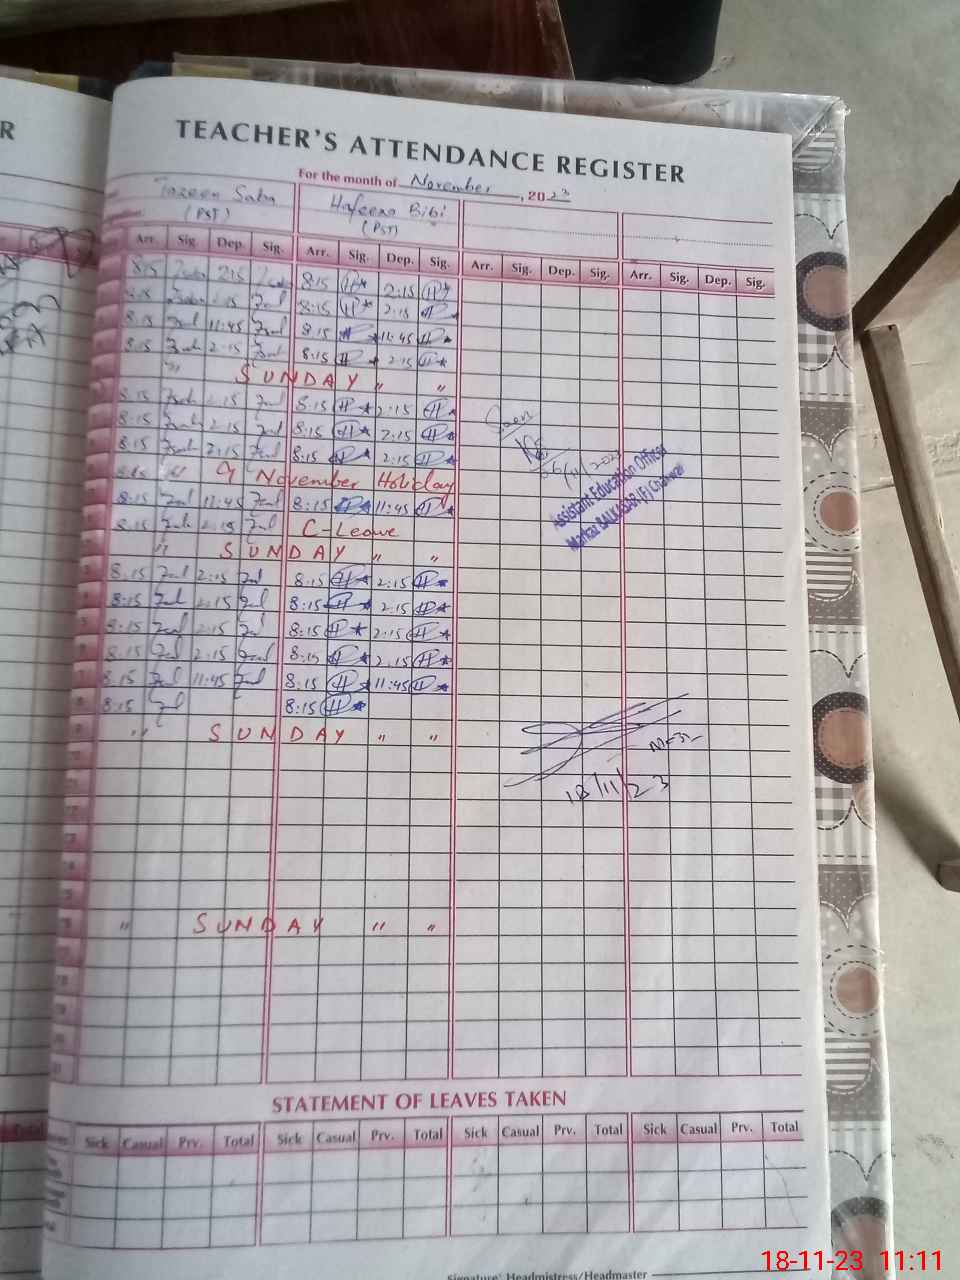 R
TEACHER'S ATTENDANCE REGISTER
For the month of November, 2023
Tazeen Saba Hafeeza Bibi
(PST) (PST)
Arr. Sig. Dep. Sig. Arr. Sig. Dep. Sig. Arr. Sig. Dep. Sig. Arr. Sig. Dep. Sig.
8:15 2:15 8:15 H 2:15 H
8:15 2:15 8:15 H 2:15 H
8:15 11:45 8:15 H 11:45 H
8:15 2:15 8:15 H 2:15 H
" SUNDAY " "
8:15 2:15 8:15 H 2:15 H
8:15 2:15 8:15 H 2:15 H
8:15 2:15 8:15 H 2:15 H
9 November Holiday
8:15 11:45 8:15 H 11:45 H
8:15 2:15 C-Leave
" SUNDAY " "
8:15 2:15 8:15 H 2:15 H
8:15 2:15 8:15 H 2:15 H
8:15 2:15 8:15 H 2:15 H
8:15 2:15 8:15 H 2:15 H
8:15 11:45 8:15 H 11:45 H
8:15 8:15 H
" SUNDAY " "
" SUNDAY " "
Seen
Assistant Education Officer
Markaz BALKASSAR (F) Chakwal
18/11/23
STATEMENT OF LEAVES TAKEN
Total Sick Casual Prv. Total Sick Casual Prv. Total Sick Casual Prv. Total Sick Casual Prv. Total
Signature: Headmistress/Headmaster
18-11-23 11:11